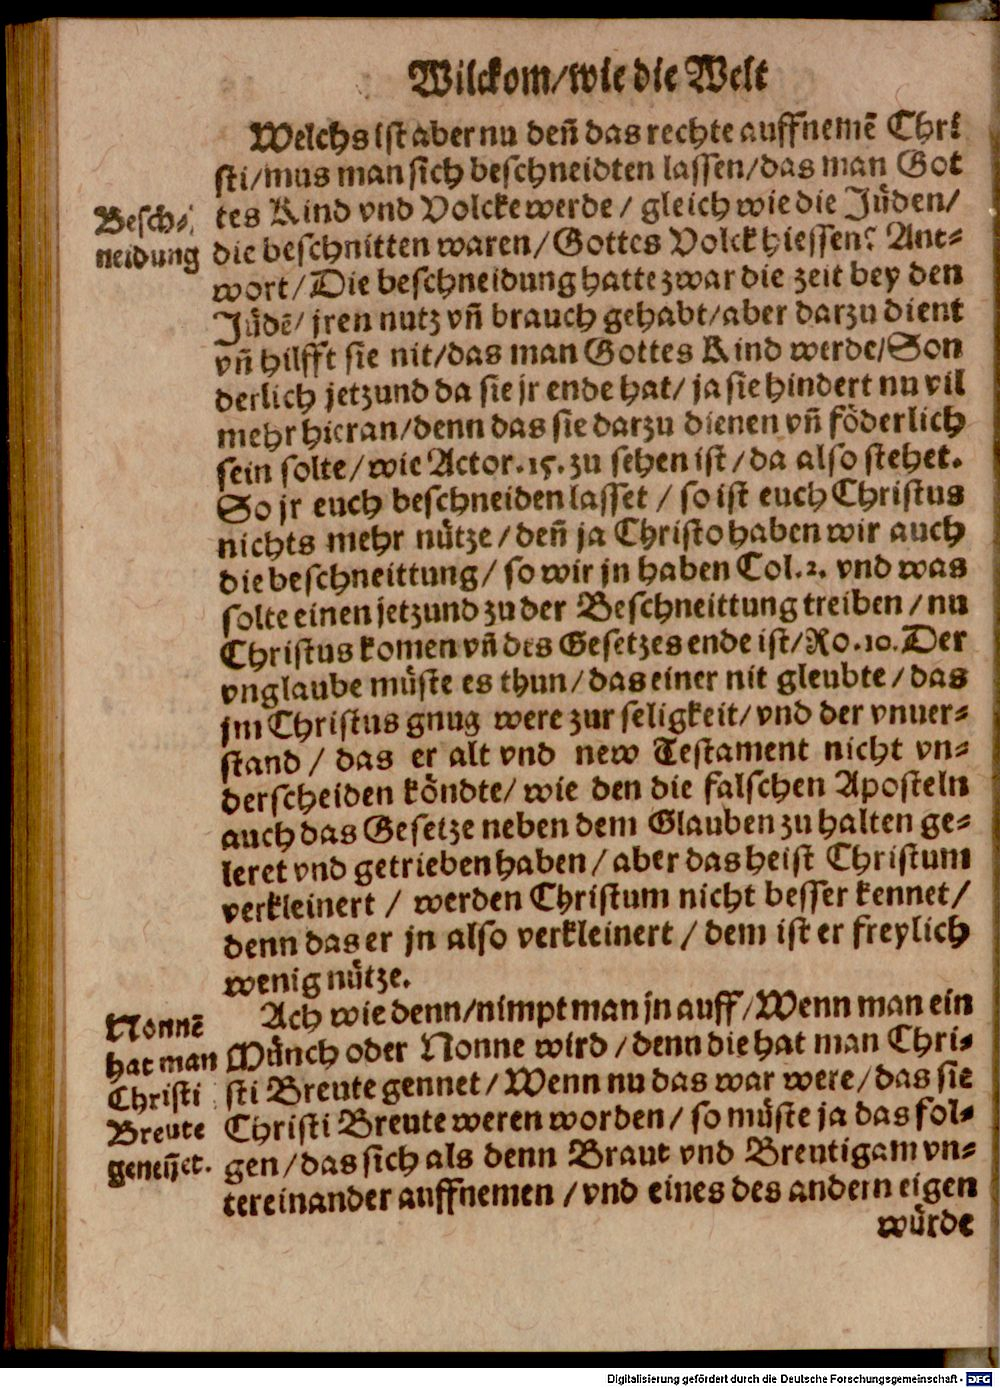 Wilckom/wie die Welt
Welchs ist aber nu deñ das rechte auffnemẽ Chri
sti/mus man sich beschneidten lassen/das man Got
Besch⸗
tes Kind vnd Volcke werde / gleich wie die Jüden/
neidung
die beschnitten waren/Gottes Volck hiessen? Ant⸗
wort/Die beschneidung hatte zwar die zeit bey den
Jüdẽ/ jren nutz vñ brauch gehabt/aber darzu dient
vñ hilfft sie nit/das man Gottes Kind werde/Son
derlich jetzund da sie jr ende hat/ ja sie hindert nu vil
mehr hieran/denn das sie darzu dienen vñ föderlich
sein solte/wie Actor.15.zu sehen ist/da also stehet.
So jr euch beschneiden lasset / so ist euch Christus
nichts mehr nütze/deñ ja Christo haben wir auch
die beschneittung/ so wir jn haben Col.2. vnd was
solte einen jetzund zu der Beschneittung treiben/nu
Christus komen vñ des Gesetzes ende ist/Ro.10.Der
vnglaube müste es thun/das einer nit gleubte/das
jm Christus gnug were zur seligkeit/vnd der vnuer⸗
stand / das er alt vnd new Testament nicht vn⸗
derscheiden köndte/ wie den die falschen Aposteln
auch das Gesetze neben dem Glauben zu halten ge⸗
leret vnd getrieben haben/aber das heist Christum
verkleinert / werden Christum nicht besser kennet/
denn das er jn also verkleinert/dem ist er freylich
wenig nütze.
Nonnẽ
hat man
Christi
Breute
geneñet.
Ach wie denn/nimpt man jn auff/Wenn man ein
Münch oder Nonne wird/denn die hat man Chri⸗
sti Breute gennet/Wenn nu das war were/das sie
Christi Breute weren worden/ so müste ja das fol⸗
gen/das sich als denn Braut vnd Breutigam vn⸗
tereinander auffnemen /vnd eines des andern eigen
würde
Digitalisierung gefördert durch die Deutsche Forschungsgemeinschaft - DFG